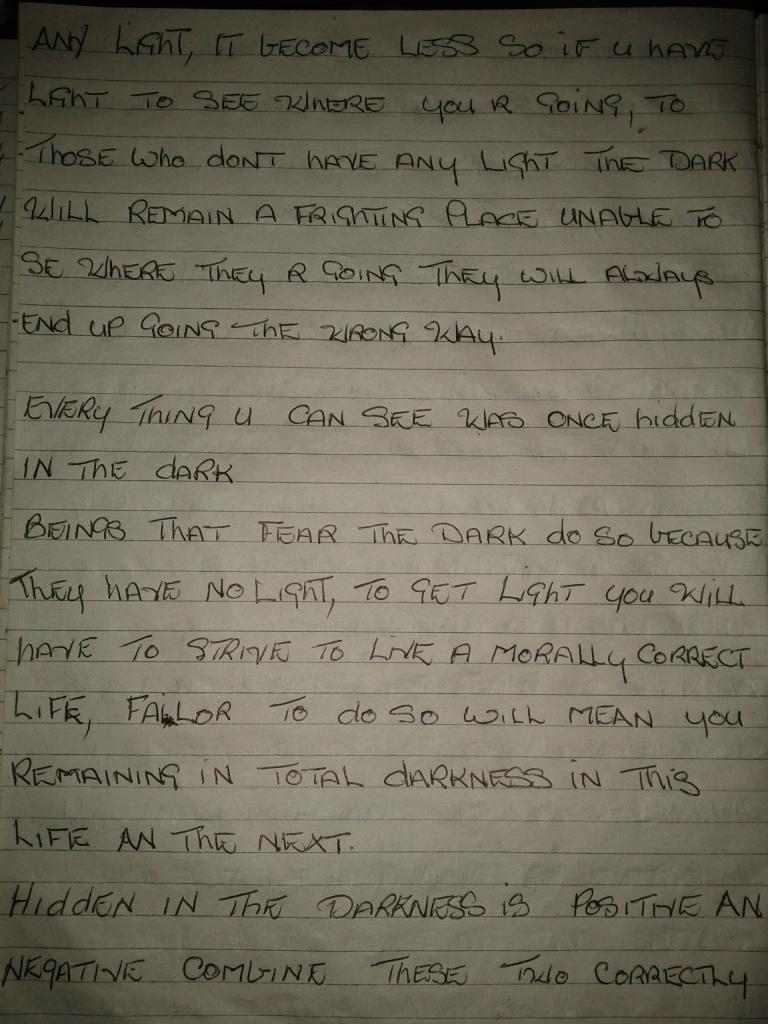 ANY LIGHT, IT BECOME LESS SO IF U HAVE
LIGHT TO SEE WHERE YOU R GOING, TO
THOSE WHO DONT HAVE ANY LIGHT THE DARK
WILL REMAIN A FRIGHTING PLACE UNABLE TO
SE WHERE THEY R GOING THEY WILL ALWAYS
END UP GOING THE WRONG WAY.
EVERY THING U CAN SEE WAS ONCE hidden
IN THE dARK
BEINGS THAT FEAR THE DARK do SO bECAUSE
THEY HAVE NO LIGHT, TO GET LIGHT YOU WILL
HAVE TO STRIVE TO LIVE A MORALLY CORRECT
LIFE, FAILLOR TO do SO WILL MEAN YOU
REMAINING IN TOTAL dARKNESS IN THIS
LIFE AN THE NEXT.
HIddEN IN THE DARKNESS IS POSITIVE AN
NEGATIVE COMBINE THESE TWO CORRECTLY